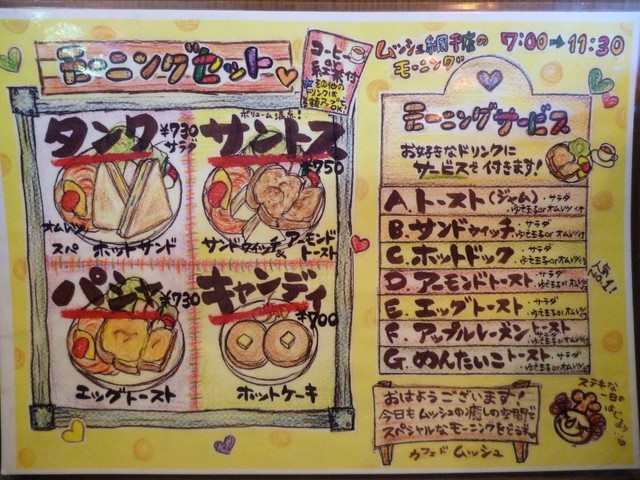 モーニングセット
コーヒー
紅茶付
その他の
ドリンクは
差額アップで
OK!
ムッシュ網干店の
モーニング
7:00→11:30
タンク
¥730
サラダ
オムレツ
スパ ホットサンド
ボリューム満点!
サントス
¥750
サンドウィッチ&アーモンド
トースト
パシャ
¥730
エッグトースト
キャンディ
¥700
ホットケーキ
モーニングサービス
お好きなドリンクに
サービスで付きます!
A.トースト(ジャム)・サラダ
・ゆで玉子orオムレツ付
B.サンドウィッチ・サラダ
・ゆで玉子orオムレツ付
C.ホットドック・サラダ
・ゆで玉子orオムレツ付
D.アーモンドトースト・サラダ
・ゆで玉子orオムレツ付
人気
NO.1!
E.エッグトースト・サラダ
F.アップルレーズントースト
・サラダ
・ゆで玉子orオムレツ付
G.めんたいこトースト・サラダ
・ゆで玉子orオムレツ付
おはようございます!
今日もムッシュの癒しの空間で
スペシャルなモーニングをどうぞ
カフェド ムッシュ
ステキな
一日の
はじまり